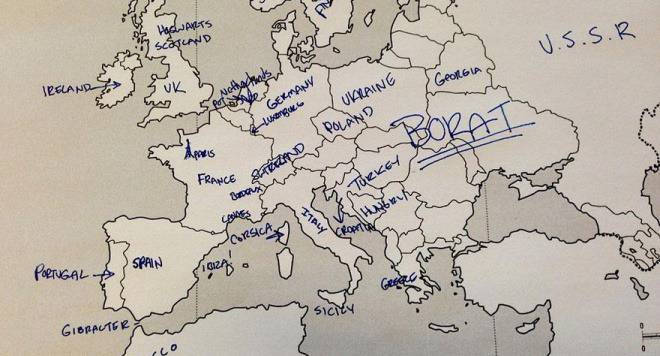 HOGWARTS
SCOTLAND
U.S.S.R
IRELAND
UK
GERMANY
UKRAINE
GEORGIA
LUXEMBURG
POLAND
BORAT
PARIS
FRANCE
TURKEY
BORDEAUX
HUNGRY
CANNES
CORSICA
ITALY
CROATIA
PORTUGAL
SPAIN
IBIZA
GREECE
SICILY
GIBRALTER